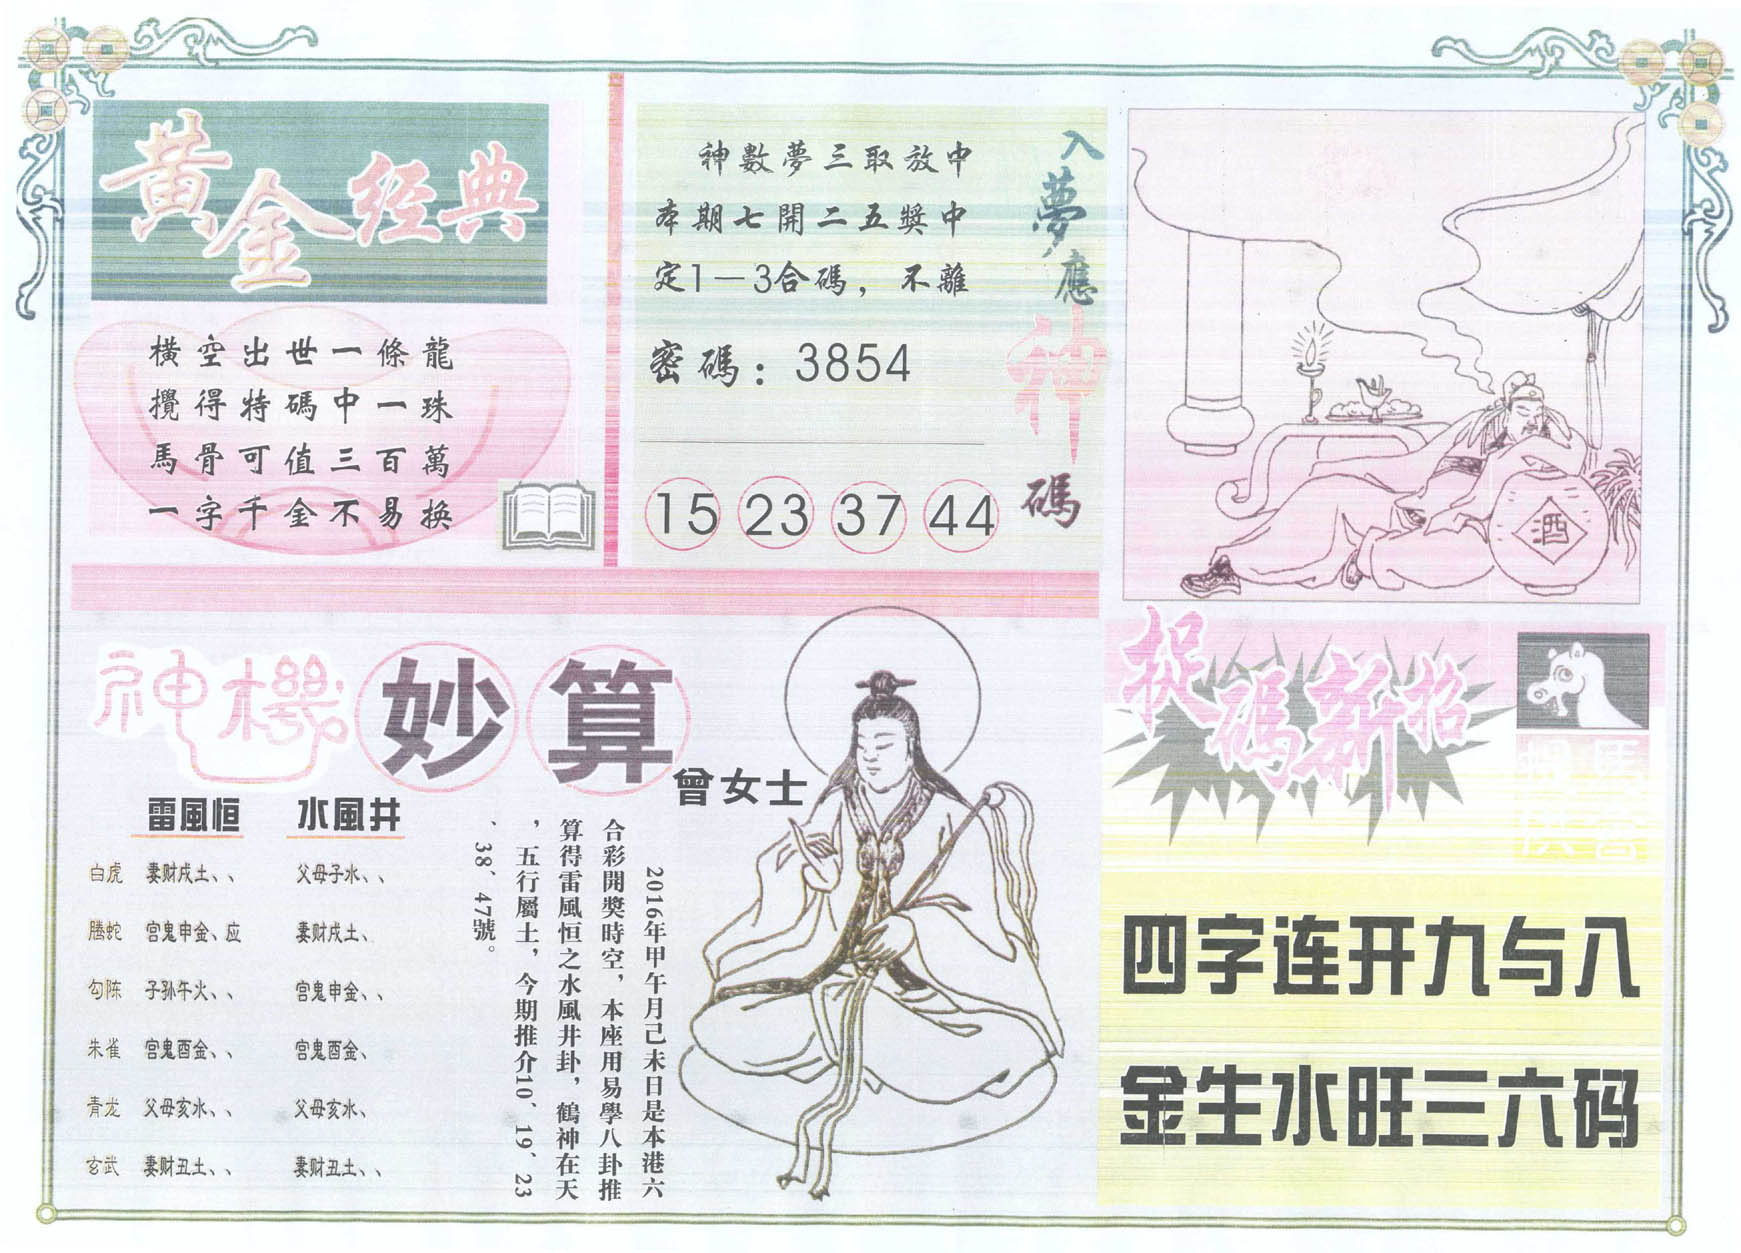 黄金经典
橫空出世一條龍
攪得特碼中一珠
馬骨可值三百萬
一字千金不易换
神數夢三取放中
本期七開二五獎中
定1—3合碼，不離
密碼：3854
15 23 37 44
入夢應神碼
酒
神機妙算
曾女士
雷風恒 水風井
白虎 妻财戌土、、 父母子水、、
腾蛇 宫鬼申金、应 妻财戌土、
勾陈 子孙午火、、 宫鬼申金、、
朱雀 宫鬼酉金、、 宫鬼酉金、
青龙 父母亥水、、 父母亥水、
玄武 妻财丑土、、 妻财丑土、、
2016年甲午月己未日是本港六
合彩開獎時空，本座用易學八卦推
算得雷風恒之水風井卦，鶴神在天
，五行屬土，今期推介10、19、23
、38、47號。
捉碼新招
四字连开九与八
金生水旺三六码